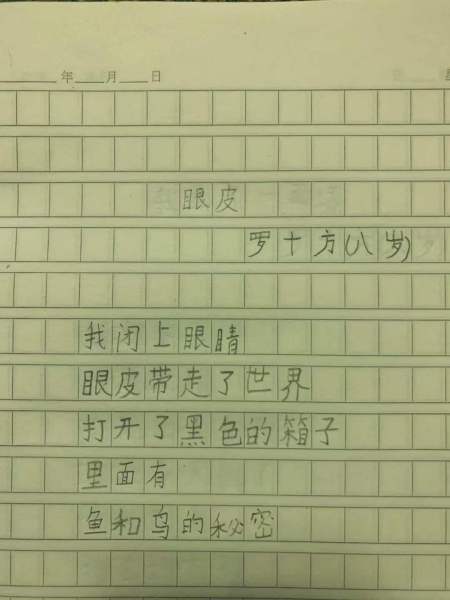 年 月 日
眼皮
罗十方(八岁)
我闭上眼睛
眼皮带走了世界
打开了黑色的箱子
里面有
鱼和鸟的秘密